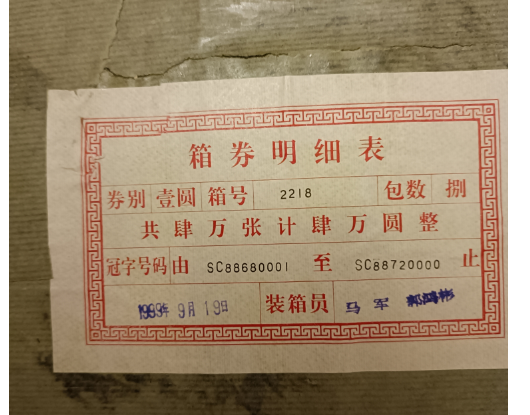 箱券明细表
券别 壹圆 箱号 2218 包数 捌
共肆万张计肆万圆整
冠字号码 由 SC88680001 至 SC88720000 止
1999年9月19日 装箱员 马军 郝鸿彬